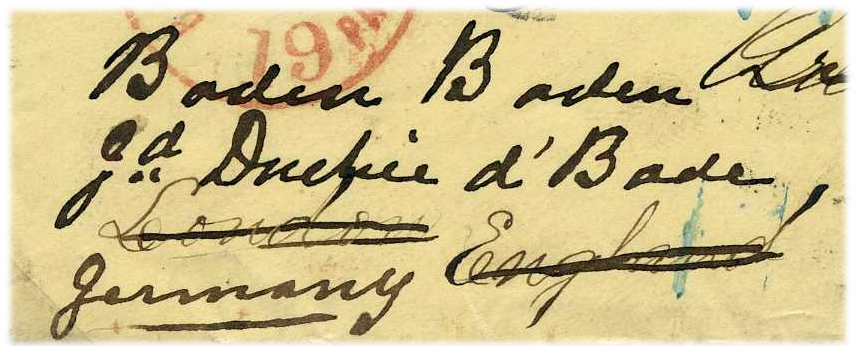 19
Baden Baden
gd Duchie d'Bade,
London England
Germany